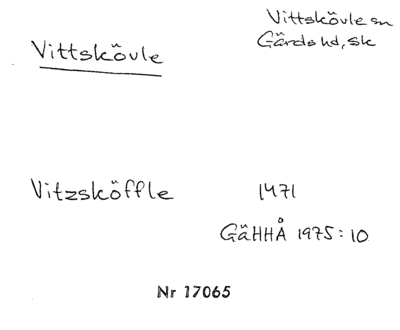 Vittskövle
Vittskövle sn
Gärds hd, Sk
Vitzsköffle 1471
GäHHÅ 1975:10
Nr 17065